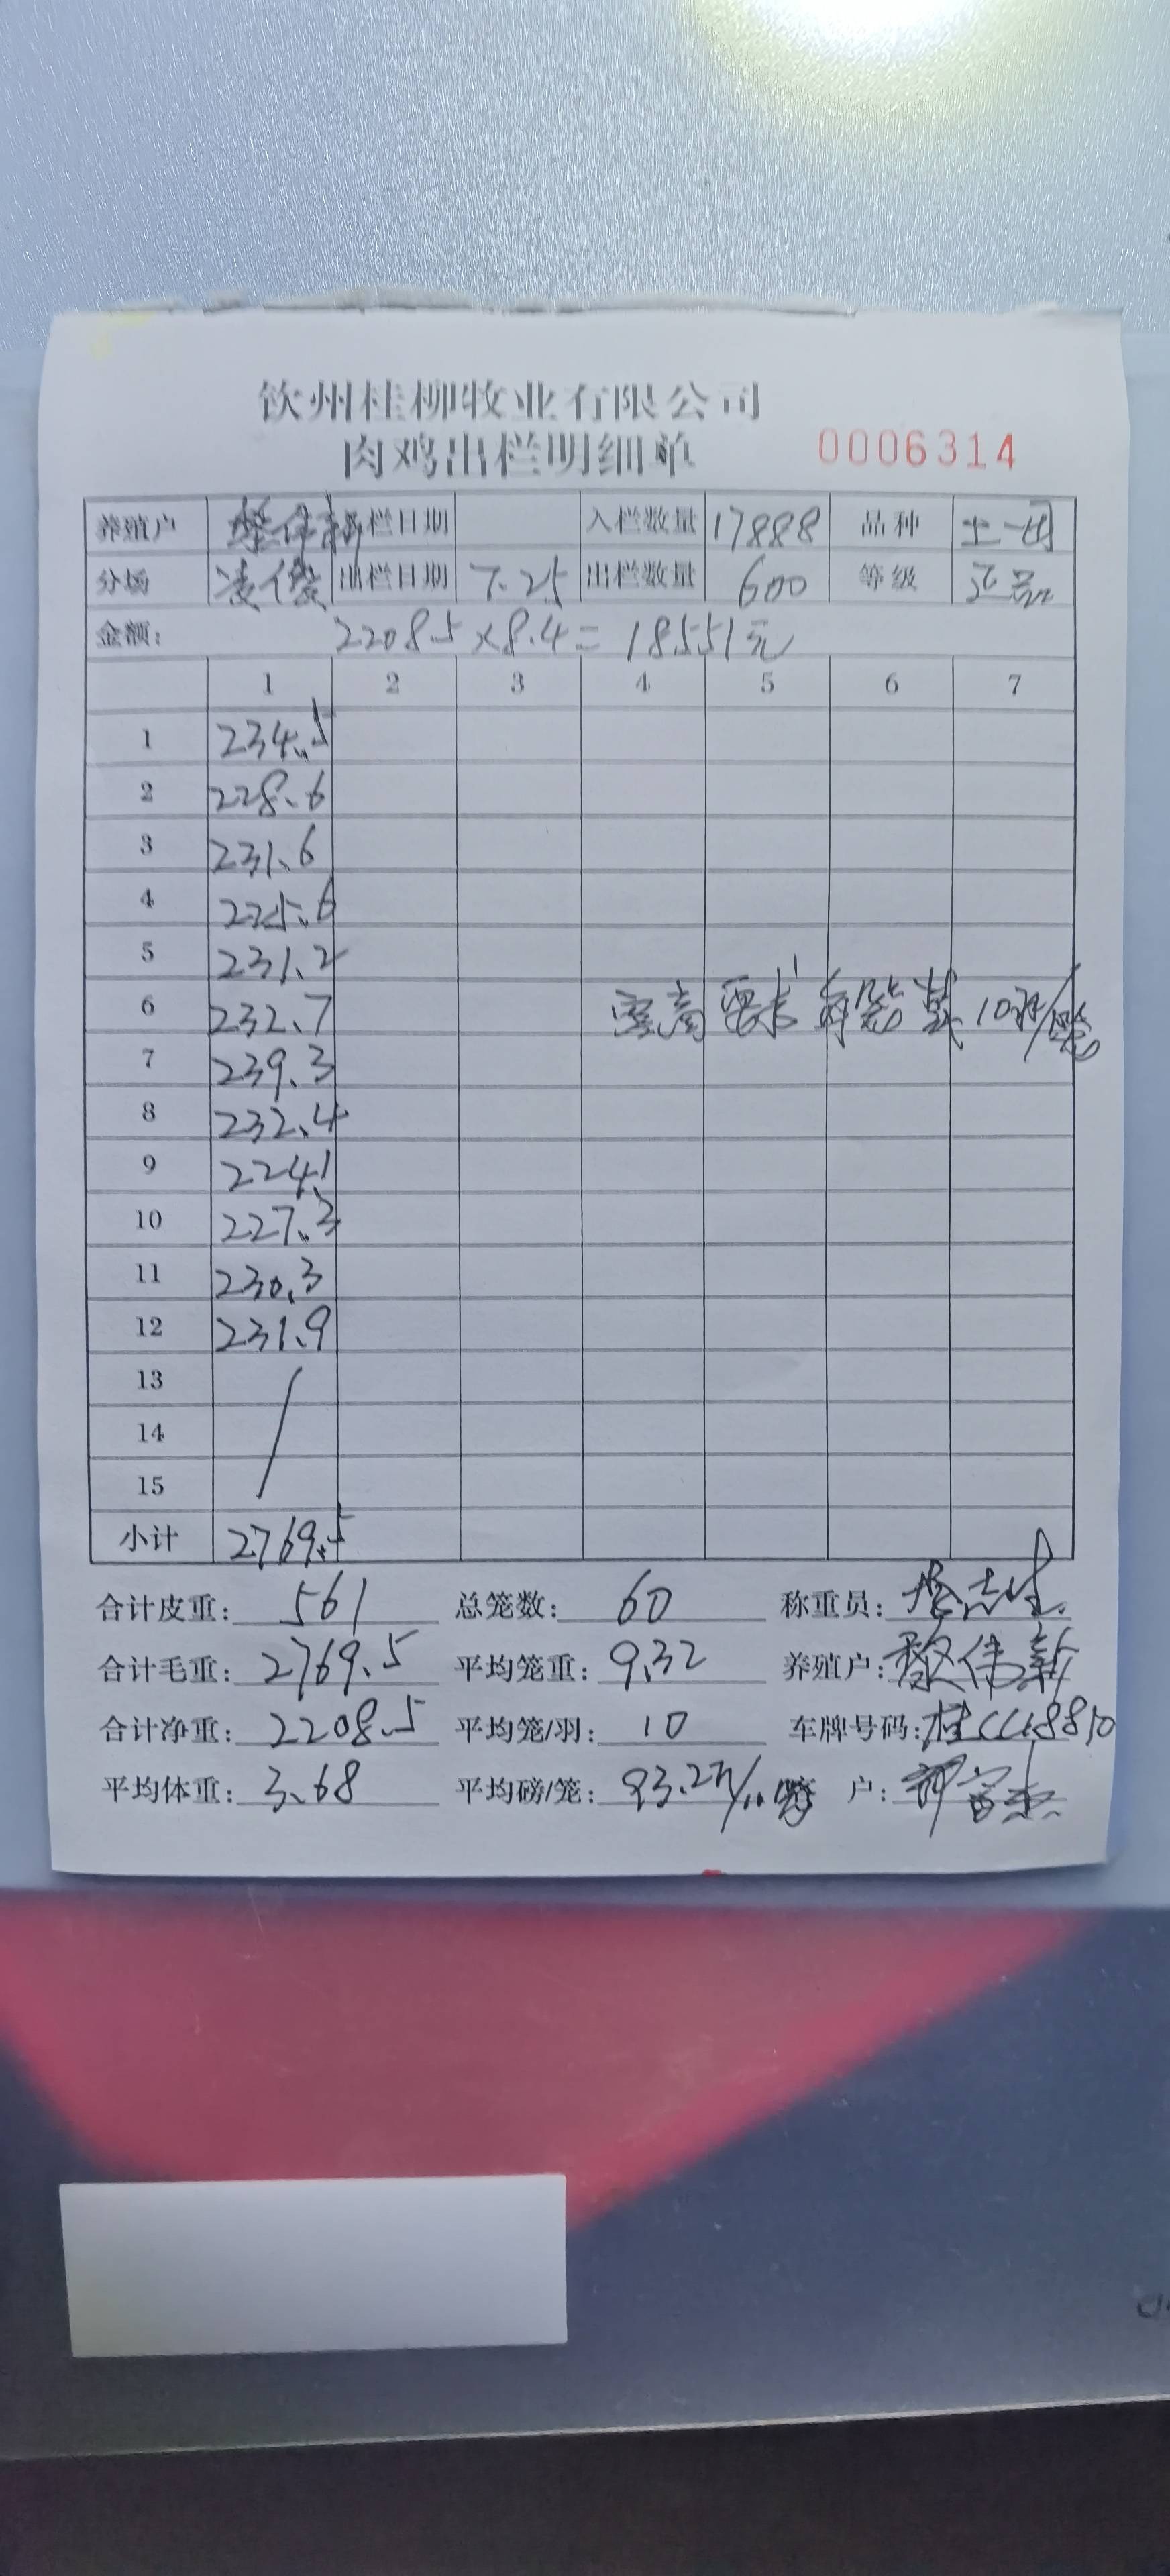 钦州桂柳牧业有限公司
肉鸡出栏明细单 0006314
养殖户 黎伟新 栏日期 入栏数量 17888 品种 土一
分场 凌俊 出栏日期 7.25 出栏数量 600 等级 正品
金额: 2208.5×8.4=18551元
1 2 3 4 5 6 7
1 234.5
2 228.6
3 231.6
4 225.6
5 231.2
6 232.7 要求每笼装10羽/笼
7 239.3
8 232.4
9 224.1
10 227.3
11 230.3
12 231.9
13
14
15
小计 2769.5
合计皮重: 561 总笼数: 60 称重员:
合计毛重: 2769.5 平均笼重: 9.32 养殖户: 黎伟新
合计净重: 2208.5 平均笼/羽: 10 车牌号码: 桂
平均体重: 3.68 平均磅/笼: 93.2 户: